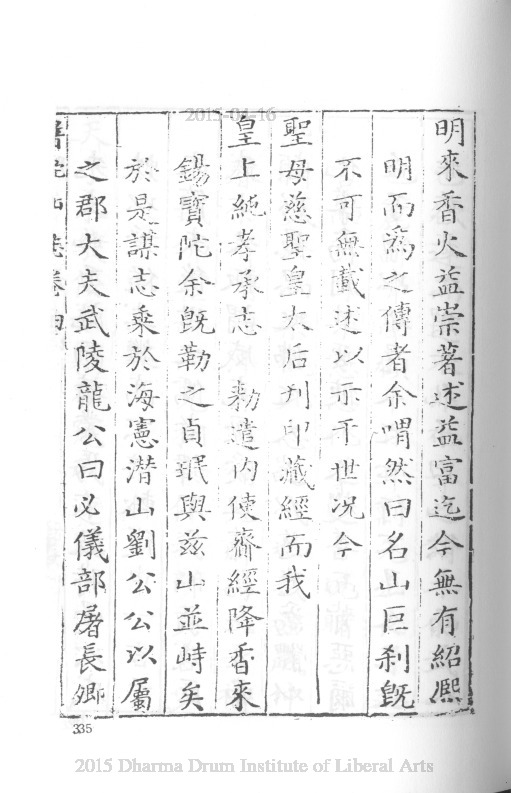 2015-04-16
明來香火益崇著述益富迄今無有紹熈
明而為之傳者余喟然曰名山巨刹既
不可無載述以示于世况今
聖母慈聖皇太后刋印藏經而我
皇上純孝承志 勑遣内使齎經降香來
錫寳陀余既勒之貞珉與兹山並峙矣
於是謀志乘於海憲潜山劉公公以屬
之郡大夫武陵龍公曰必儀部屠長卿
335
2015 Dharma Drum Institute of Liberal Arts